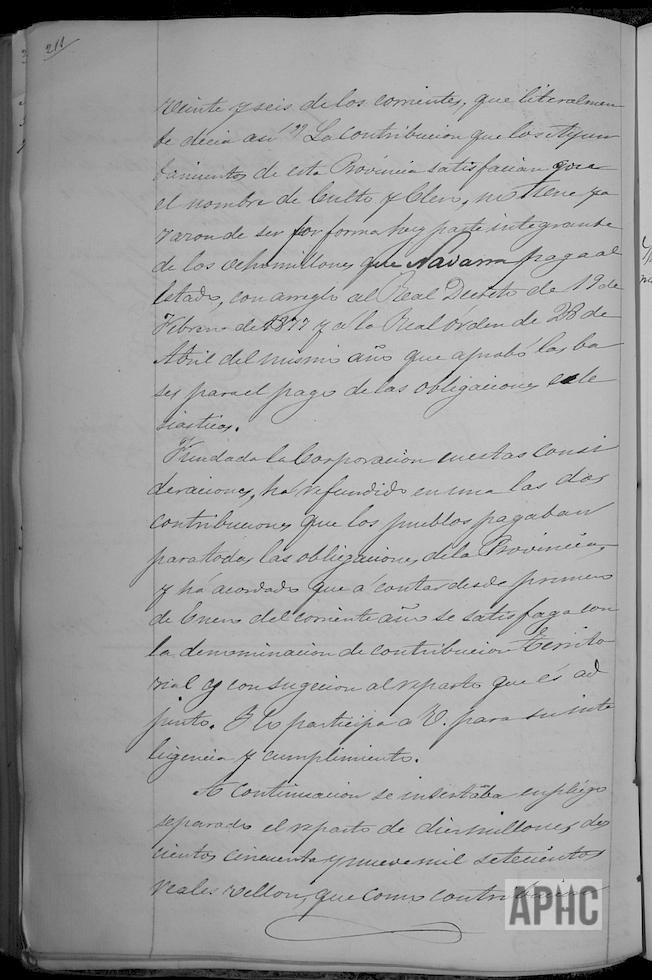 211
veinte y seis de los corrientes, que literalmen
te decia asi " La contribucion que los Ayun
tamientos de esta Provincia satisfacian con
el nombre de Culto y Clero, no tiene ya
razon de ser por formar hoy parte integrante
de los ocho millones que Navarra paga al
Estado, con arreglo al Real Decreto de 19 de
Febrero de 1877 y á la Real órden de 28 de
Abril del mismo año que aprobó las ba
ses para el pago de las obligaciones ecle
siasticas.
Fundada la Corporacion en estas consi
deraciones, ha refundido en una las dos
contribuciones que los pueblos pagaban
para todas las obligaciones de la Provincia,
y há acordado que á contar desde primero
de Enero del corriente año se satisfaga con
la denominacion de contribucion territo
rial y con sugecion al reparto que és ad
junto. Y lo participa á V. para su inte
ligencia y cumplimiento.
A continuacion se insertaba en pliego
separado el reparto de diez millones dos
cientos cincuenta y nueve mil setecientos
reales vellon, que como contribucion
APHC